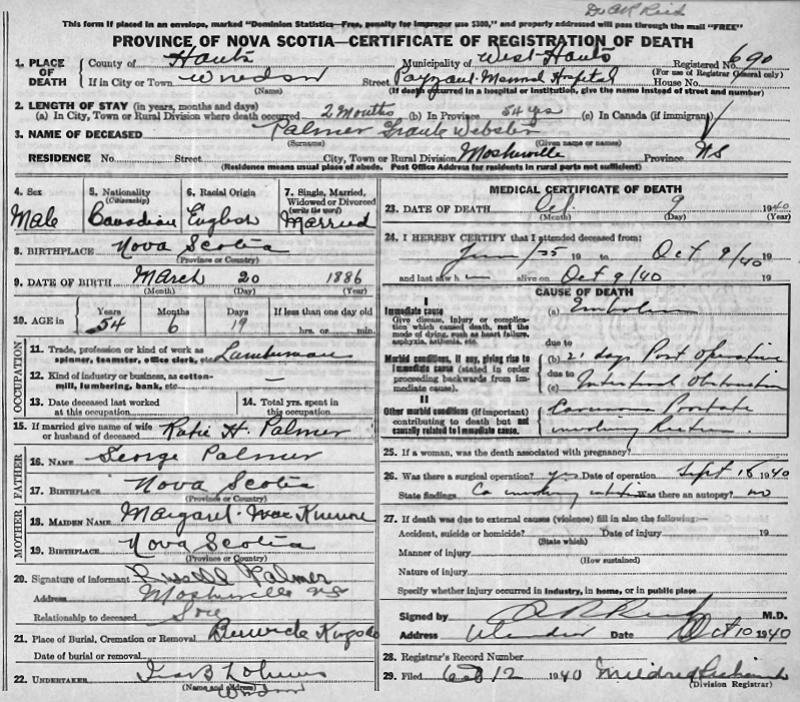 Dr A R Reid
This form if placed in an envelope, marked "Dominion Statistics—Free, penalty for improper use $300," and properly addressed will pass through the mail "FREE"
PROVINCE OF NOVA SCOTIA—CERTIFICATE OF REGISTRATION OF DEATH
1. PLACE OF DEATH County of Hants Municipality of West Hants Registered No. 690
(For use of Registrar General only)
If in City or Town Windsor Street Payzant Memorial Hospital House No.
(Name) (If death occurred in a hospital or institution, give the name instead of street and number)
2. LENGTH OF STAY (in years, months and days)
(a) In City, Town or Rural Division where death occurred 2 Months (b) In Province 54 yrs (c) In Canada (if immigrant)
3. NAME OF DECEASED Palmer Frank Webster
(Surname) (Given name or names)
RESIDENCE No. Street City, Town or Rural Division Mosherville Province NS
(Residence means usual place of abode. Post Office Address for residents in rural parts not sufficient)
4. Sex 5. Nationality (Citizenship) 6. Racial Origin 7. Single, Married, Widowed or Divorced (write the word)
Male Canadian English Married
8. BIRTHPLACE Nova Scotia
(Province or Country)
9. DATE OF BIRTH March 20 1886
(Month) (Day) (Year)
10. AGE in Years Months Days If less than one day old
54 6 19 hrs. or min.
OCCUPATION
11. Trade, profession or kind of work as spinner, teamster, office clerk, etc. Lumberman
12. Kind of industry or business, as cotton-mill, lumbering, bank, etc. —
13. Date deceased last worked at this occupation 14. Total yrs. spent in this occupation
15. If married give name of wife or husband of deceased Katie H. Palmer
FATHER
16. NAME George Palmer
17. BIRTHPLACE Nova Scotia
(Province or Country)
MOTHER
18. MAIDEN NAME Margaret
19. BIRTHPLACE Nova Scotia
(Province or Country)
20. Signature of informant Russell Palmer
Address Mosherville NS
Relationship to deceased Son
21. Place of Burial, Cremation or Removal Burial
Date of burial or removal
22. UNDERTAKER
(Name and address) Windsor
MEDICAL CERTIFICATE OF DEATH
23. DATE OF DEATH Oct. 9 1940
(Month) (Day) (Year)
24. I HEREBY CERTIFY that I attended deceased from:
19 to Oct 9/40
and last saw h alive on Oct 9/40 19
CAUSE OF DEATH
I
Immediate cause
Give disease, injury or complication which caused death, not the mode of dying, such as heart failure, asphyxia, asthenia, etc.
(a) Embolism
due to
Morbid conditions, if any, giving rise to immediate cause (stated in order proceeding backwards from immediate cause).
(b) 21 days Post Operative
due to
(c) Intestinal Obstruction
II
Other morbid conditions (if important) contributing to death but not causally related to immediate cause.
Carcinoma Prostate
involving Rectum.
25. If a woman, was the death associated with pregnancy?
26. Was there a surgical operation? yes Date of operation Sept 18 1940
State findings Ca involving Was there an autopsy? no
27. If death was due to external causes (violence) fill in also the following:—
Accident, suicide or homicide? Date of injury 19
(State which)
Manner of injury
(How sustained)
Nature of injury
Specify whether injury occurred in industry, in home, or in public place
Signed by A R Reid M.D.
Address Windsor Date Oct 10 1940
28. Registrar's Record Number
29. Filed Oct 12 1940 Mildred
(Division Registrar)